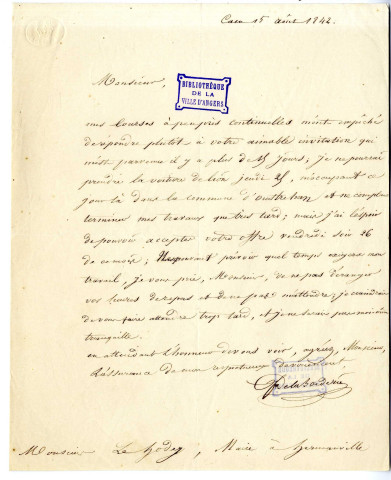 Caen 15 août 1842.
Monsieur,
BIBLIOTHÈQUE
DE LA
VILLE D'ANGERS
mes courses à peu près continuelles m'ont empêché
de répondre plutôt à votre aimable invitation qui
m'est parvenue il y a plus de 15 jours, Je ne pourrai
prendre la voiture de lion jeudi 25, m'occupant ce
jour là dans la commune d'ouistreham et ne comptant
terminer mes travaux que très tard; mais j'ai l'espoir
de pouvoir accepter votre offre vendredi soir 26
de ce mois; Ne pouvant prévoir quel temps exigera mon
travail, je vous prie, Monsieur, de ne pas déranger
vos heures de repas et de ne pas m'attendre; je craindrais
de vous faire attendre trop tard, et je ne serais pas moi-même
tranquille.
en attendant l'honneur de vous voir, agréez, Monsieur,
l'assurance de mon respectueux dévouement,
De la Borderie
Monsieur Le Hodey, Maire à hermanville